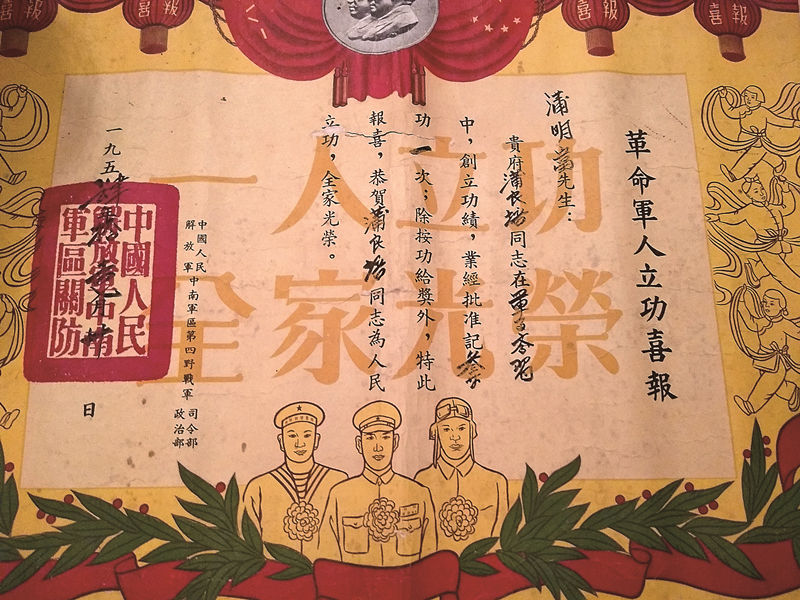 喜報
喜報
喜報
喜報
革命軍人立功喜報
蒲明先生：
貴府蒲良同志在
中，創立功績，業經批准記叁
功一次；除按功給獎外，特此
報喜，恭賀蒲良同志為人民
立功，全家光榮。
一人立功
全家光榮
中國人民
解放軍
中南軍區第四野戰軍
司令部
政治部
一九五
日
中國人民
解放軍中南
軍區關防